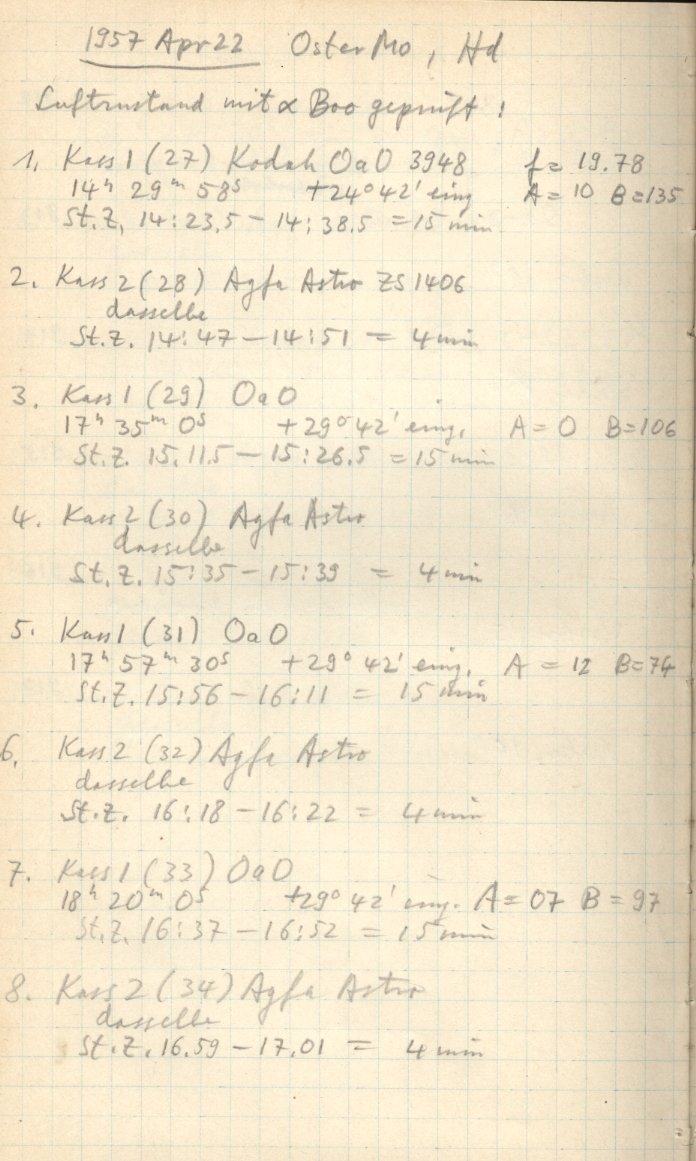 1957 Apr 22 Oster Mo, Hd
Luftzustand mit α Boo geprüft:
1. Kass 1 (27) Kodak OaO 3948 f= 19.78
14ʰ 29ᵐ 58ˢ +24° 42' eing A = 10 B = 135
St.Z. 14:23.5 – 14:38.5 = 15 min
2. Kass 2 (28) Agfa Astro ZS 1406
dasselbe
St.Z. 14:47 – 14:51 = 4 min
3. Kass 1 (29) OaO
17ʰ 35ᵐ 0ˢ +29° 42' eing. A = 0 B=106
St.Z. 15.11.5 – 15:26.5 = 15 min
4. Kass 2 (30) Agfa Astro
dasselbe
St.Z. 15:35 – 15:39 = 4 min
5. Kass 1 (31) OaO
17ʰ 57ᵐ 30ˢ +29° 42' eing. A = 12 B=74
St.Z. 15:56 – 16:11 = 15 min
6. Kass 2 (32) Agfa Astro
dasselbe
St.Z. 16:18 – 16:22 = 4 min
7. Kass 1 (33) OaO
18ʰ 20ᵐ 0ˢ +29° 42' eing. A = 07 B = 97
St.Z. 16:37 – 16:52 = 15 min
8. Kass 2 (34) Agfa Astro
dasselbe
St.Z. 16.59 – 17.01 = 4 min